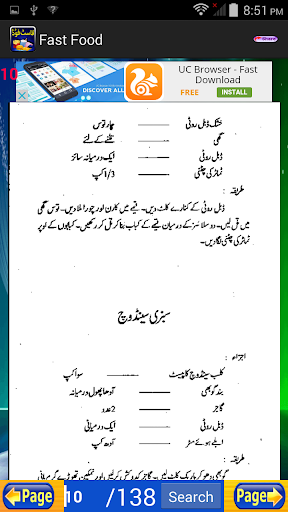 8:51 PM
فاسٹ فوڈ
Fast Food
Share
10
DISCOVER ALL
UC Browser - Fast
Download
FREE
INSTALL
خشک ڈبل روٹی چار توس
گھی تلنے کے لئے
ڈبل روٹی ایک درمیانہ سائز
ٹماٹر کی چٹنی 1/3 کپ
طریقہ :
ڈبل روٹی کے کنارے کاٹ دیں۔ قیمے میں کارن اور چورا ملا دیں۔ توس گھی
میں تل لیں۔ دو سلائسز کے درمیان قیمے کے کباب بنا کر تل کر رکھیں۔ کبابوں کے اوپر
ٹماٹر کی چٹنی لگا دیں۔
سبزی سینڈوچ
اجزاء :
کلب سینڈوچ کا پیسٹ سوا کپ
بند گوبھی آدھا پھول درمیانہ
گاجر 2 عدد
ڈبل روٹی ایک درمیانی
ابلے ہوئے مٹر آدھ کپ
طریقہ :
گوبھی دھو کر باریک کاٹ لیں۔ گاجر کدوکش کر لیں اور نمکین تھوڑے
Page
10
/138
Search
Page